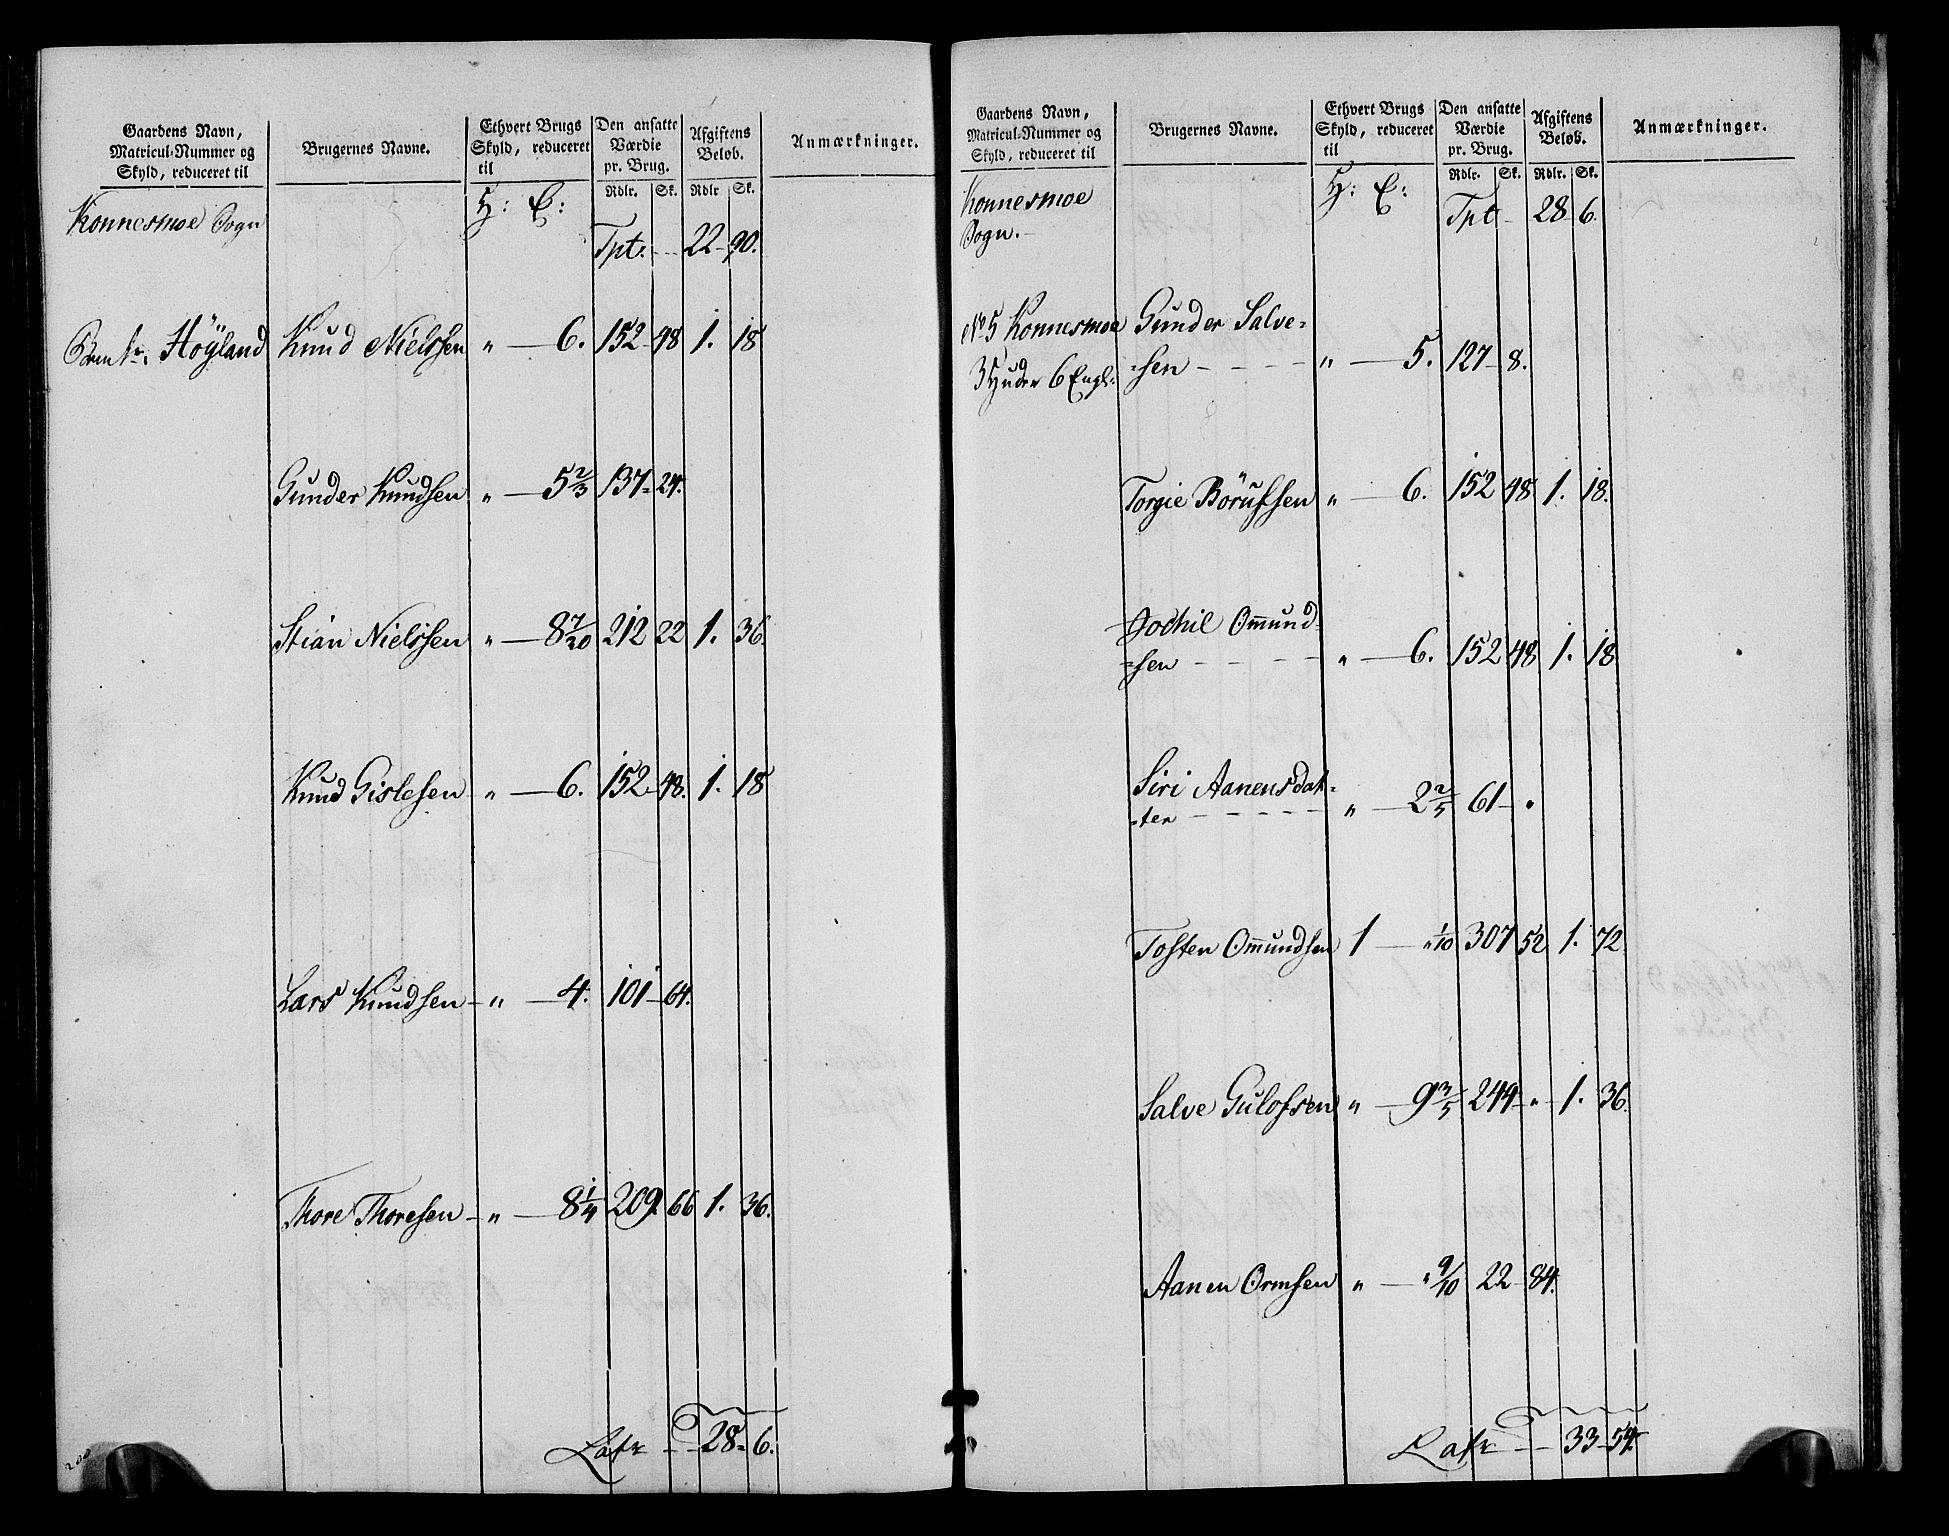 Gaardens Navn, Matricul-Nummer og Skyld, reduceret til | Brugernes Navne. | Ethvert Brugs Skyld, reduceret til | Den ansatte Værdie pr. Brug. | Afgiftens Beløb. | Anmærkninger.
Rdlr. Sk. Rdlr Sk.
Konnesmoe Sogn H: E: Tpt. 22 - 90.
Høyland Knud Nielssen " — 6. 152 - 48 1. 18
Gunder Knudsen " — 5 2/3 137 - 24.
Stian Nielssen " — 8 7/20 212 22 1. 36.
Knud Gislesen " — 6. 152 - 48. 1. 18
Lars Knudsen " — 4. 101 - 64.
Thore Thoresen " — 8 1/4 209. 66 1. 36.
Latr 28 - 6.
Gaardens Navn, Matricul-Nummer og Skyld, reduceret til | Brugernes Navne. | Ethvert Brugs Skyld, reduceret til | Den ansatte Værdie pr. Brug. | Afgiftens Beløb. | Anmærkninger.
Rdlr. Sk. Rdlr. Sk.
Konnesmoe H: E: Tpt 28 6.
Sogn.
No 5 Konnesmoe Gunder Salve=
3 Huder 6 Engl: =sen " — 5. 127 - 8.
Torgie Börufsen " — 6. 152 48 1. 18.
Jochil Omund
=sen " — 6. 152 48 1. 18
Siri Aanensdat=
=ter " — 2 2/5 61 - "
Tosten Omundsen 1 — " 1/10 307 52 1. 72
Salve Gulofsen " — 9 3/5 244 - " - 1. 36.
Aanen Ormsen " — " 9/10 22 - 84.
Latr 33 - 54.